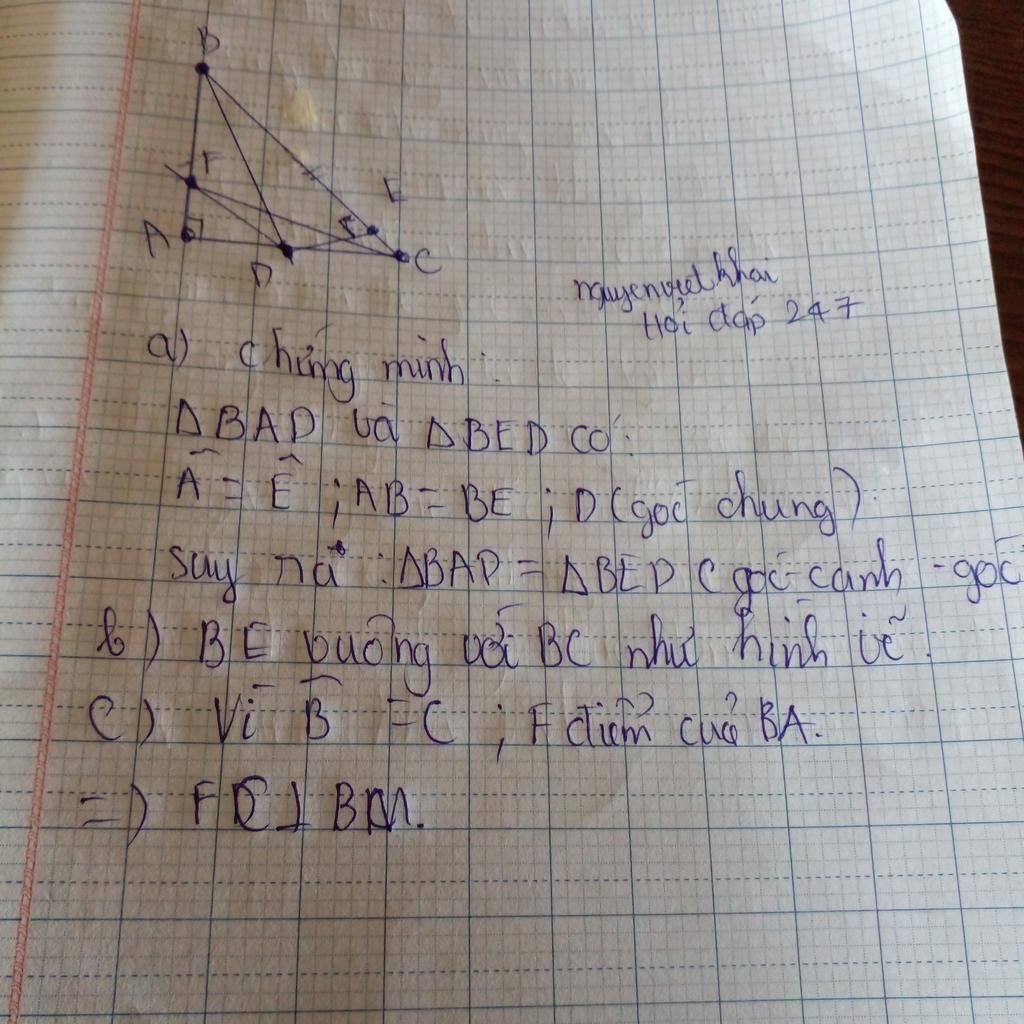 B
F
E
A
E
D
C
nguyenvietkhai
Hỏi đáp 247
a) chứng minh:
ΔBAD và ΔBED có:
Â = Ê ; AB = BE ; D (góc chung)
suy ra : ΔBAD = ΔBED ( góc-cạnh-góc
b) BE vuông với BC như hình vẽ.
c) Vì B̂ = C ; F điểm của BA.
=)